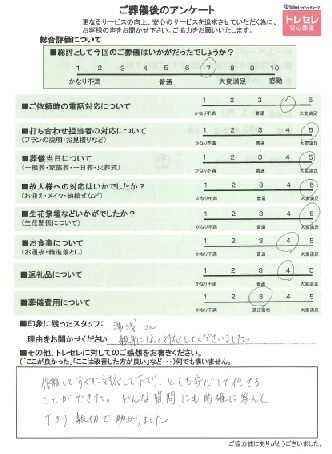 ご葬儀後のアンケート
トレセレ
安心葬儀
更なるサービスの向上、安心のサービスを追求させていただく為に、
お客様の声をお聞かせ下さい。ご協力をお願いいたします。
総合評価について
■総評として今回のご葬儀はいかがだったでしょうか？
1 2 3 4 5 6 7 8 9 10
かなり不満 普通 大変満足 感動
■ご依頼時の電話対応について
1 2 3 4 5
かなり不満 普通 大変満足
■打ち合わせ担当者の対応について
(プランの説明・お見積りなど)
1 2 3 4 5
かなり不満 普通 大変満足
■葬儀当日について
1 2 3 4 5
かなり不満 普通 大変満足
■故人様への対応はいかでしたか？
1 2 3 4 5
かなり不満 普通 大変満足
■生花祭壇などいかがでしたか？
(生花装飾について)
1 2 3 4 5
かなり不満 普通 大変満足
■お食事について
1 2 3 4 5
かなり不満 普通 大変満足
■返礼品について
1 2 3 4 5
かなり不満 普通 大変満足
■葬儀費用について
1 2 3 4 5
■印象に残ったスタッフ: さん
理由をお聞かせください 親切に対応してくださいました
■その他、トレセレに対してのご感想をお書きください。
(「ここが良かった」「ここは改善した方が良い」など…)何でも構いません。
依頼してすぐに対応して下さり、とても安心して任せる
ことができました。どんな質問にも的確に答えて
下さり親切で助かりました。
ご協力誠にありがとうございました。